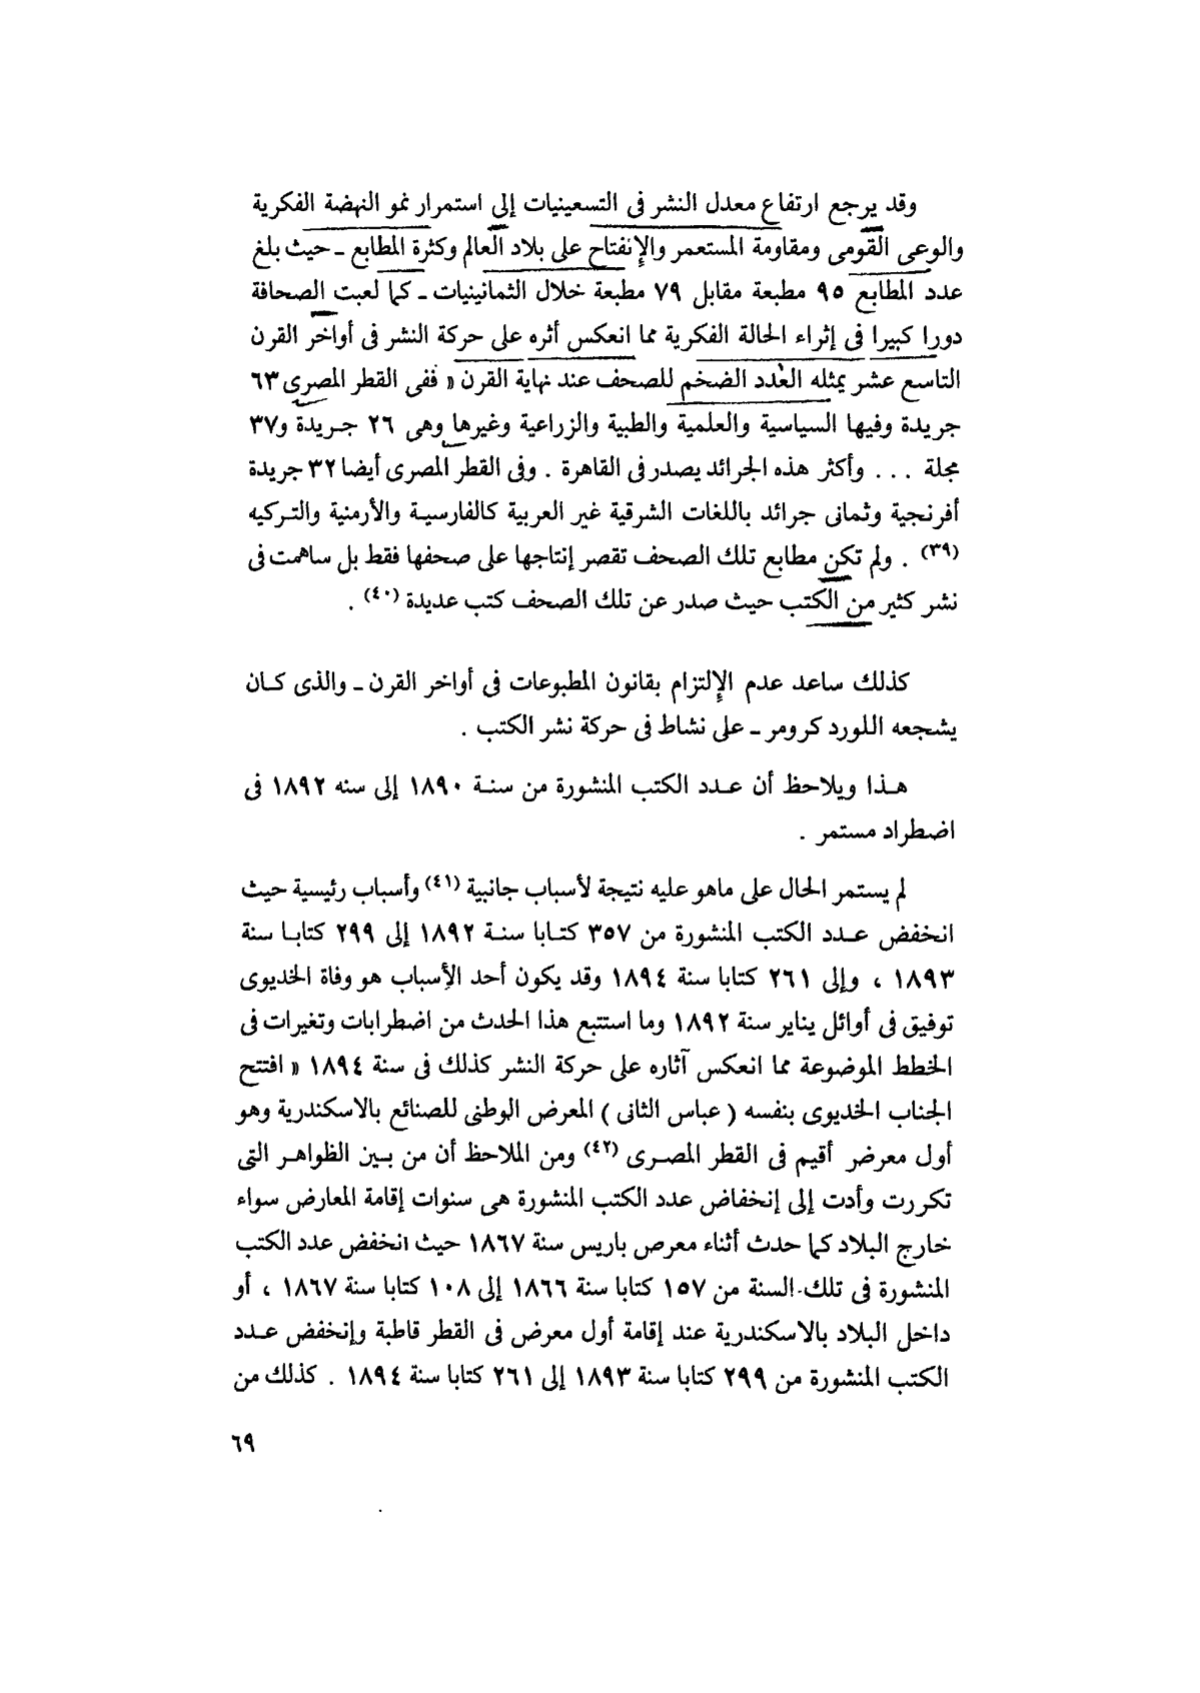 وقد يرجع ارتفاع معدل النشر فى التسعينيات إلى استمرار نمو النهضة الفكرية
والوعى القومى ومقاومة المستعمر والإنفتاح على بلاد العالم وكثرة المطابع ـ حيث بلغ
عدد المطابع ٩٥ مطبعة مقابل ٧٩ مطبعة خلال الثمانينيات ـ كما لعبت الصحافة
دورا كبيرا فى إثراء الحالة الفكرية مما انعكس أثره على حركة النشر فى أواخر القرن
التاسع عشر يمثله العدد الضخم للصحف عند نهاية القرن « ففى القطر المصرى ٦٣
جريدة وفيها السياسية والعلمية والطبية والزراعية وغيرها وهى ٢٦ جريدة و٣٧
مجلة ... وأكثر هذه الجرائد يصدر فى القاهرة . وفى القطر المصرى أيضا ٣٢ جريدة
أفرنجية وثمانى جرائد باللغات الشرقية غير العربية كالفارسية والأرمنية والتركيه
(٣٩) . ولم تكن مطابع تلك الصحف تقصر إنتاجها على صحفها فقط بل ساهمت فى
نشر كثير من الكتب حيث صدر عن تلك الصحف كتب عديدة (٤٠) .
كذلك ساعد عدم الإلتزام بقانون المطبوعات فى أواخر القرن ـ والذى كان
يشجعه اللورد كرومر ـ على نشاط فى حركة نشر الكتب .
هذا ويلاحظ أن عدد الكتب المنشورة من سنة ١٨٩٠ إلى سنه ١٨٩٢ فى
اضطراد مستمر .
لم يستمر الحال على ماهو عليه نتيجة لأسباب جانبية (٤١) وأسباب رئيسية حيث
انخفض عدد الكتب المنشورة من ٣٥٧ كتابا سنة ١٨٩٢ إلى ٢٩٩ كتابا سنة
١٨٩٣ ، وإلى ٢٦١ كتابا سنة ١٨٩٤ وقد يكون أحد الأسباب هو وفاة الخديوى
توفيق فى أوائل يناير سنة ١٨٩٢ وما استتبع هذا الحدث من اضطرابات وتغيرات فى
الخطط الموضوعة مما انعكس آثاره على حركة النشر كذلك فى سنة ١٨٩٤ « افتتح
الجناب الخديوى بنفسه ( عباس الثانى ) المعرض الوطنى للصنائع بالاسكندرية وهو
أول معرض أقيم فى القطر المصرى (٤٢) ومن الملاحظ أن من بين الظواهر التى
تكررت وأدت إلى إنخفاض عدد الكتب المنشورة هى سنوات إقامة المعارض سواء
خارج البلاد كما حدث أثناء معرص باريس سنة ١٨٦٧ حيث انخفض عدد الكتب
المنشورة فى تلك السنة من ١٥٧ كتابا سنة ١٨٦٦ إلى ١٠٨ كتابا سنة ١٨٦٧ ، أو
داخل البلاد بالاسكندرية عند إقامة أول معرض فى القطر قاطبة وإنخفض عدد
الكتب المنشورة من ٢٩٩ كتابا سنة ١٨٩٣ إلى ٢٦١ كتابا سنة ١٨٩٤ . كذلك من
٦٩